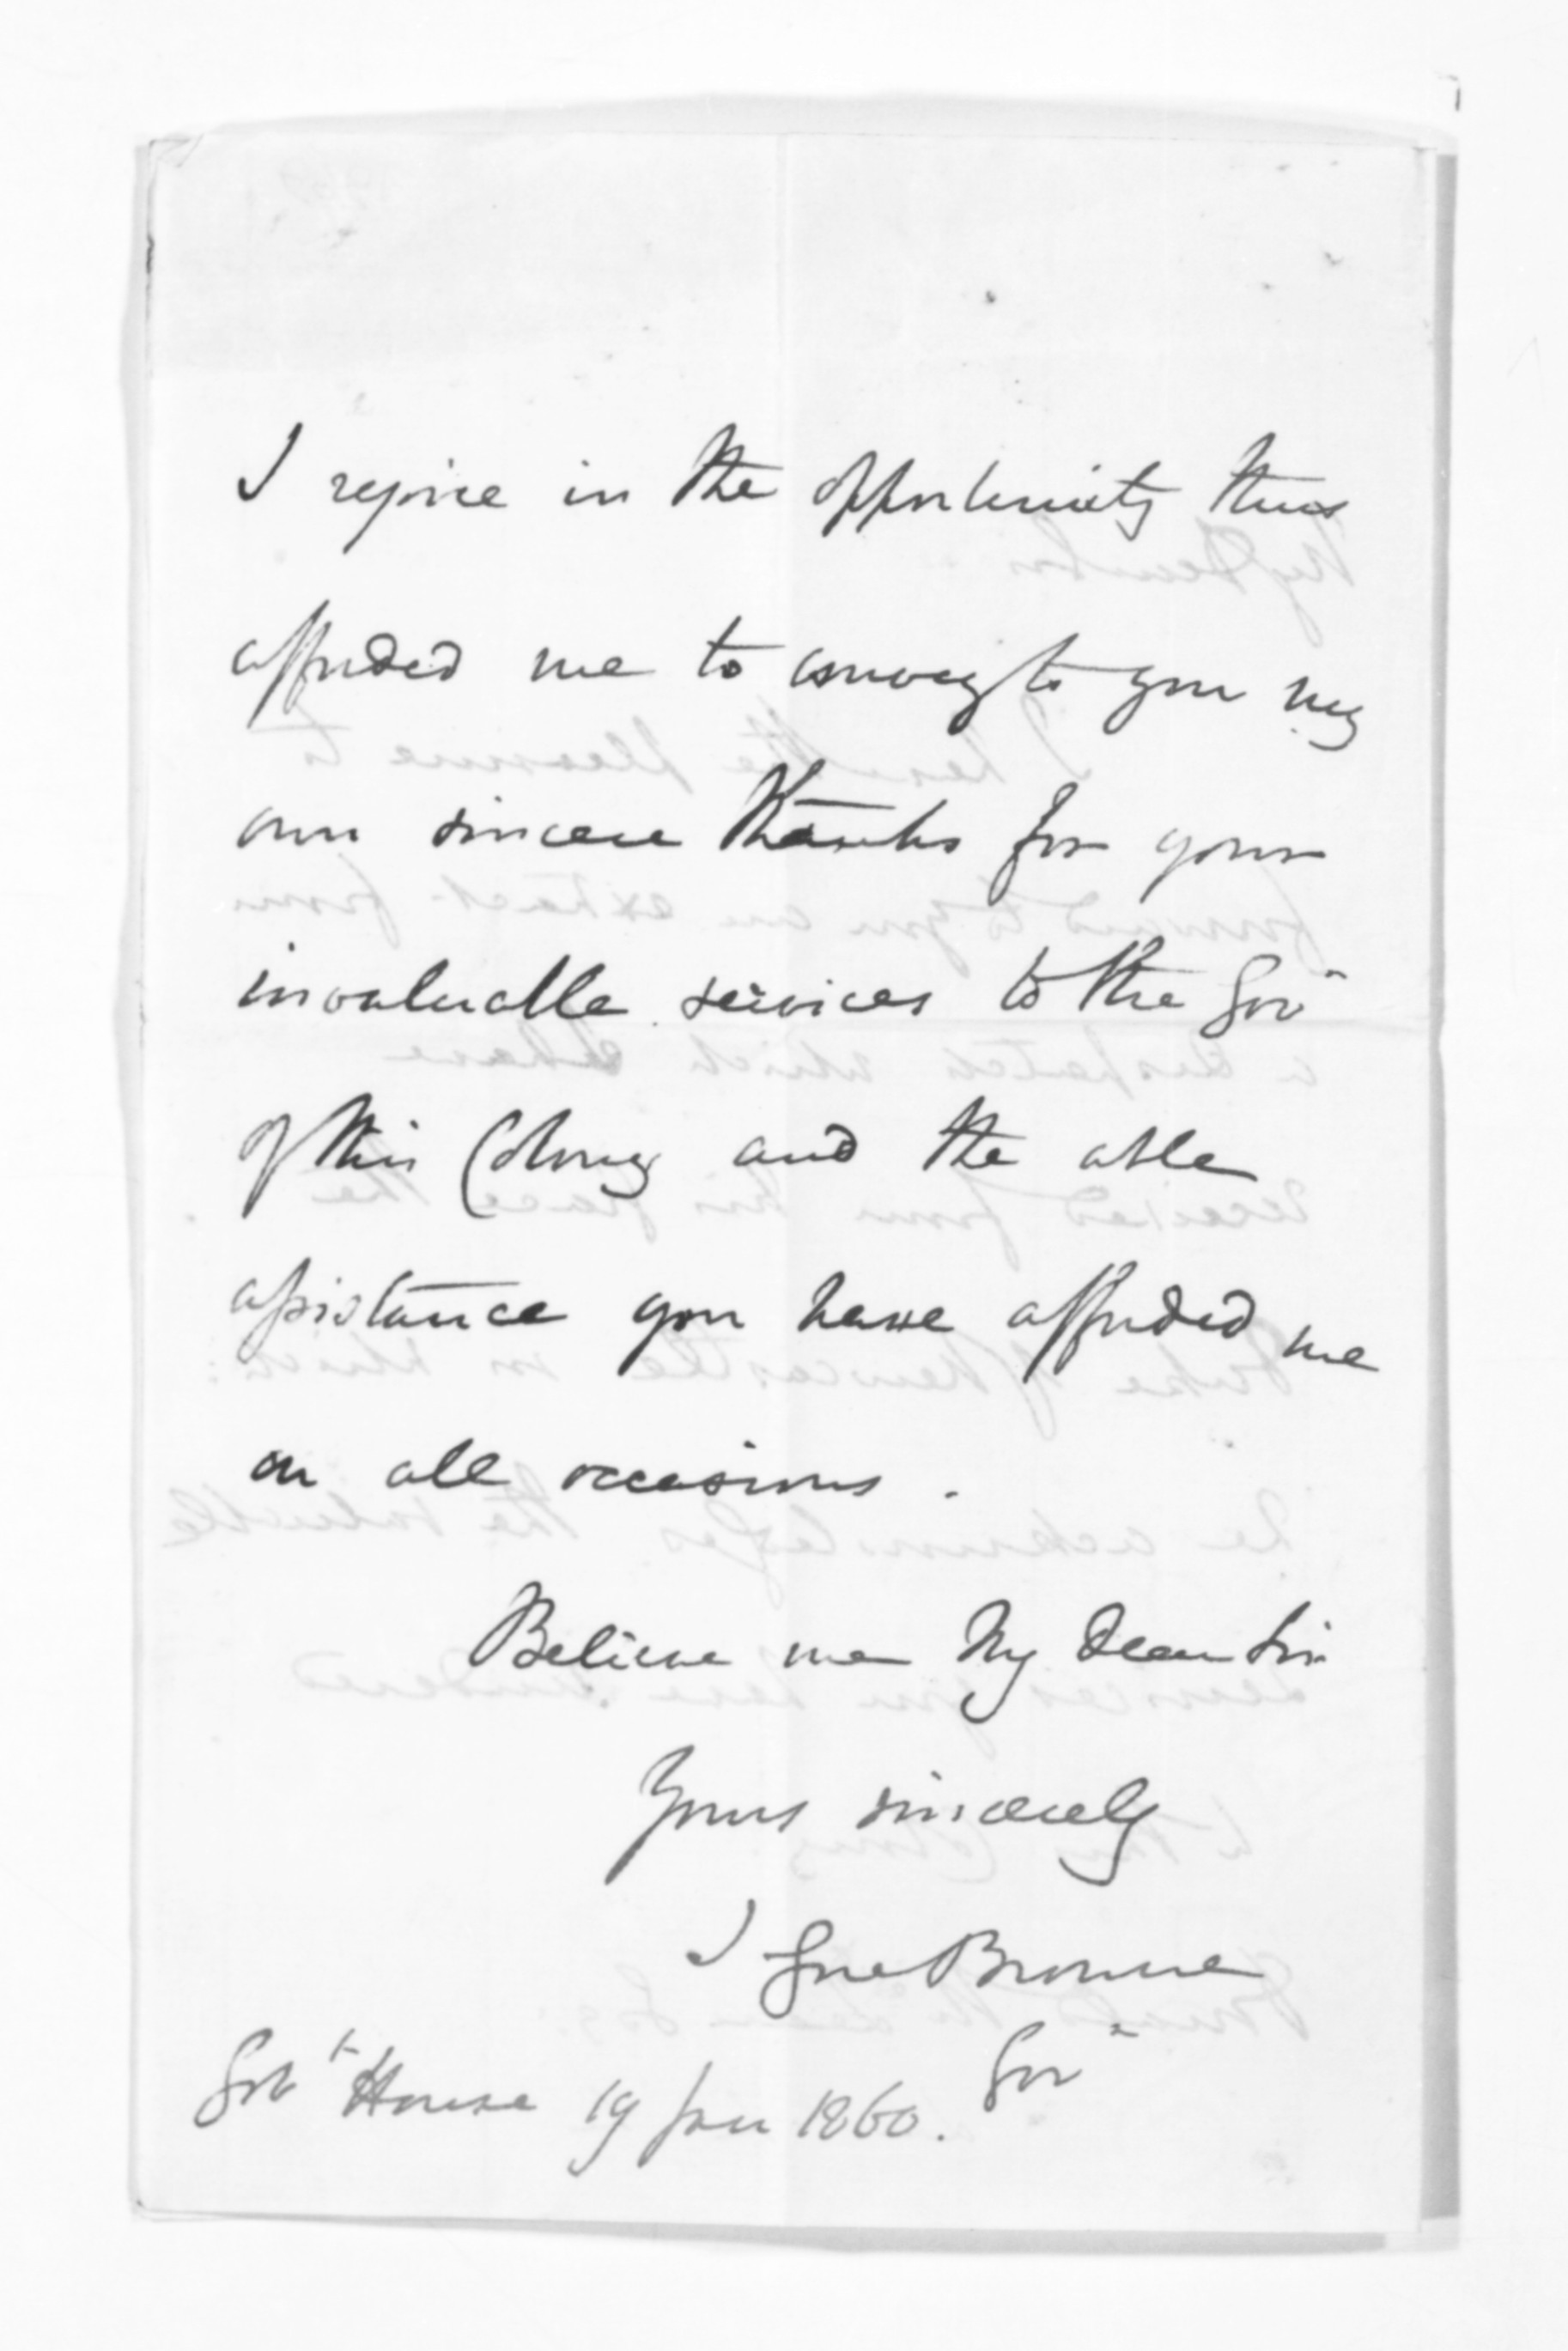 I rejoice in the opportunity thus
afforded me to convey to you my
own sincere thanks for your
invaluable services to the Govt
of this Colony and the able
assistance you have afforded me
on all occasions.
Believe me My dear Sir
Yours sincerely
T Gore Browne
Govt House 19 Jan 1860. Govr